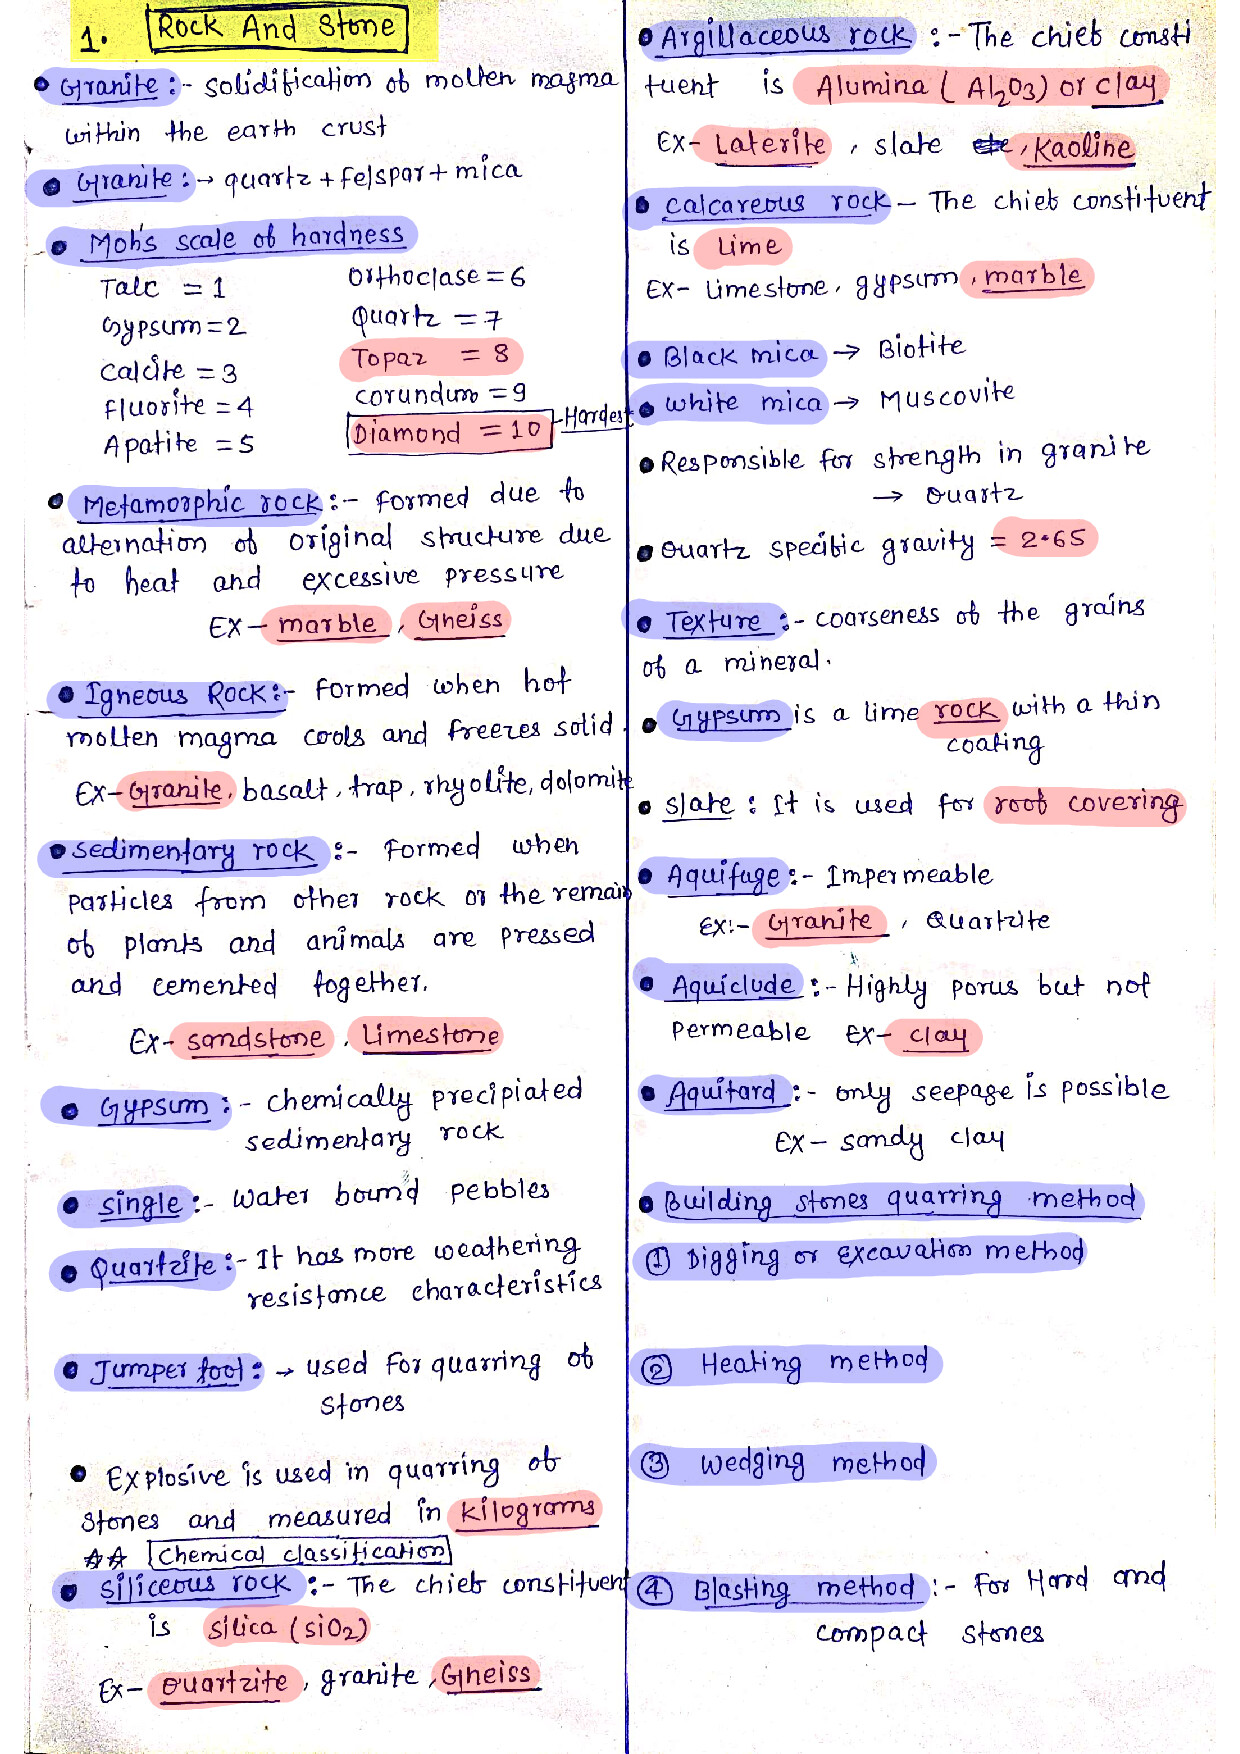 1. Rock And Stone
• Granite :- solidification of molten magma
within the earth crust
• Granite :→ quartz + felspar + mica
• Moh's scale of hardness
Talc = 1
Gypsum = 2
Calcite = 3
fluorite = 4
Apatite = 5
Orthoclase = 6
Quartz = 7
Topaz = 8
corundum = 9
Diamond = 10 - Hardest
• Metamorphic rock :- formed due to
alternation of original structure due
to heat and excessive pressure
Ex - marble, Gneiss
• Igneous Rock :- formed when hot
molten magma cools and freezes solid.
Ex - Granite, basalt, trap, rhyolite, dolomite
• sedimentary rock :- formed when
particles from other rock or the remain
of plants and animals are pressed
and cemented together.
Ex - sandstone, Limestone
• Gypsum :- chemically precipiated
sedimentary rock
• single :- water bound pebbles
• Quartzite :- It has more weathering
resistance characteristics
• Jumper tool :→ used for quarring of
stones
• Explosive is used in quarring of
stones and measured in kilograms
☆☆ Chemical classification
• siliceous rock :- The chief constituent
is silica (SiO2)
Ex - Quartzite, granite, Gneiss
• Argillaceous rock :- The chief consti
tuent is Alumina (Al2O3) or clay
Ex - Laterite, slate, Kaoline
• calcareous rock - The chief constituent
is Lime
Ex - Limestone, gypsum, marble
• Black mica → Biotite
• white mica → Muscovite
• Responsible for strength in granite
→ Quartz
• Quartz specific gravity = 2.65
• Texture :- coarseness of the grains
of a mineral.
• Gypsum is a lime rock with a thin
coating
• slate : It is used for roof covering
• Aquifuge :- Impermeable
Ex:- Granite, Quartzite
• Aquiclude :- Highly porus but not
permeable Ex - clay
• Aquitard :- only seepage is possible
Ex - sandy clay
• Building stones quarring method
① Digging or excavation method
② Heating method
③ wedging method
④ Blasting method :- For Hard and
compact stones